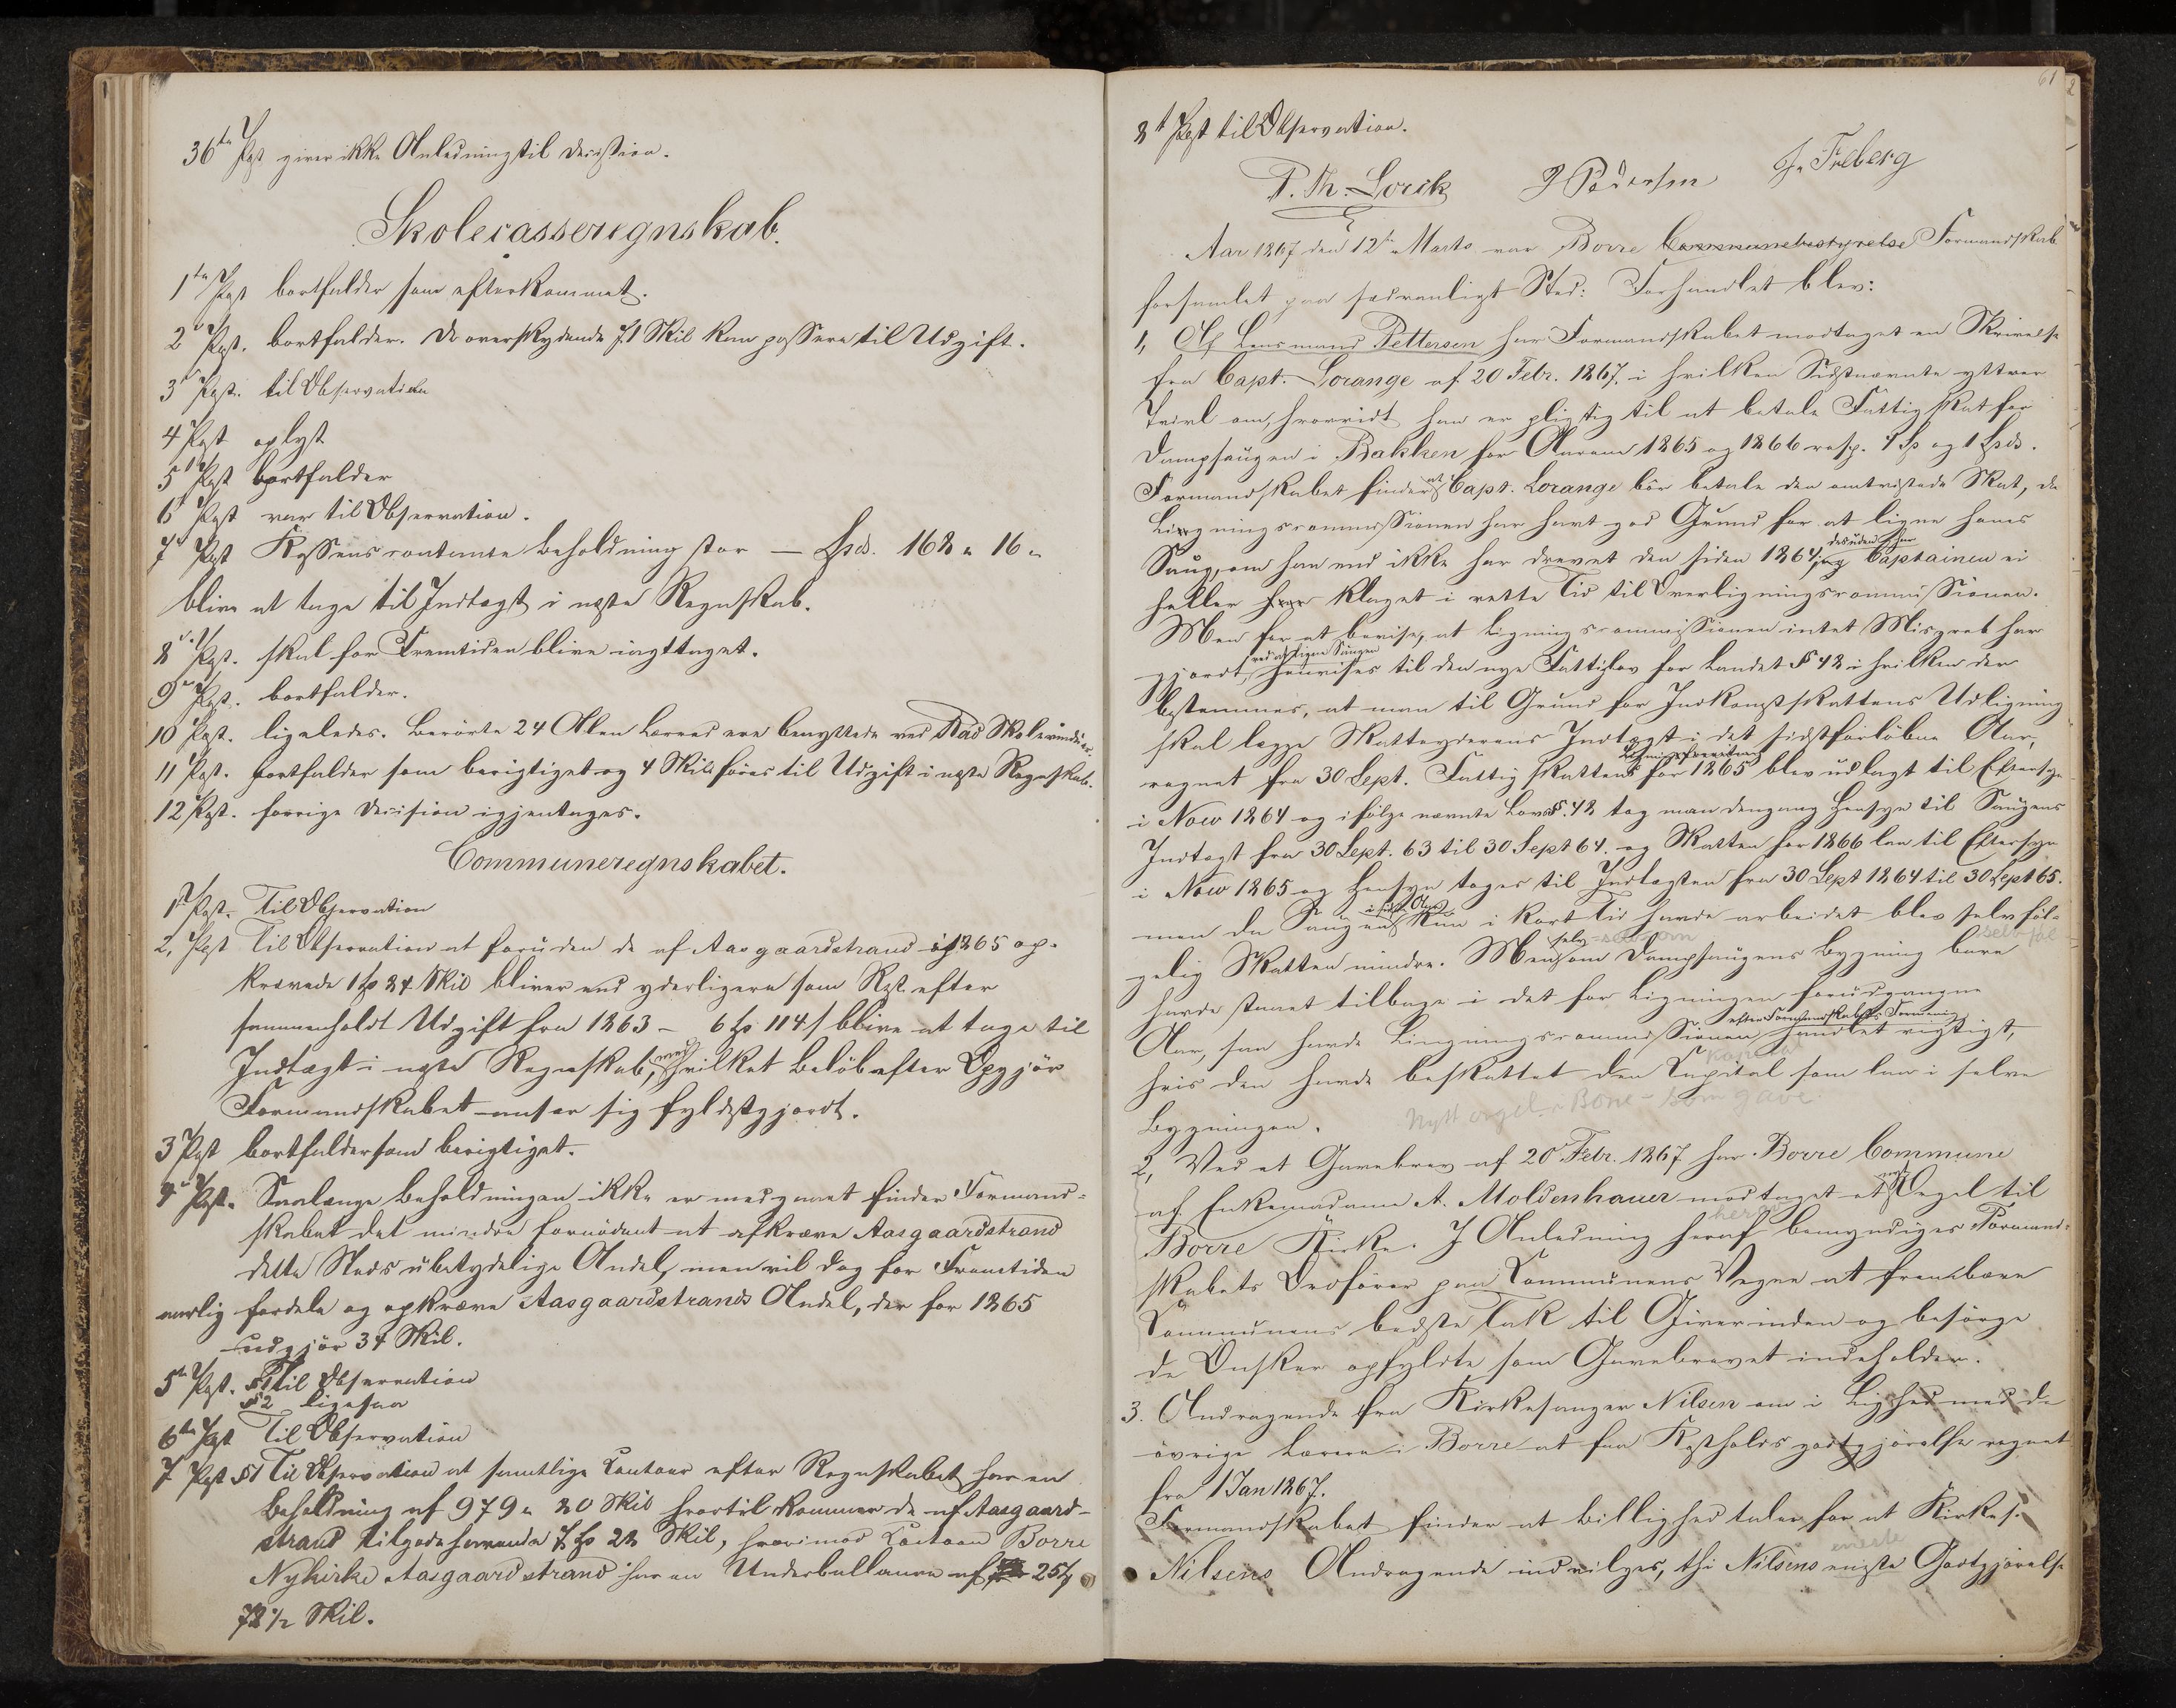 36te Post giver ikke Anledning til Decission.
Skolecasseregnskab.
1te Post bortfalder som efterkommet.
2 Post. bortfalder. De overskydende 71 Skil kan passere til Udgift.
3 Post. til Observation
4 Post oplyst
5 Post bortfalder
6 Post var til Observation.
7 Post Kassens contante Beholdning stor — Spd. 168 " 16 "
blive at tage til Indtægt i næste Regnskab.
8de Post. skal for Fremtiden blive iagttaget.
9de Post. bortfalder.
10 Post. ligeledes. Berørte 24 Alen Lærred ere benyttede ved Skolevinduer
11 Post. bortfalder som berigtiget og 4 Skil føres til Udgift i næste Regnskab.
12 Post. forrige Decision igjentages.
Communeregnskabet.
1st Post. Til Observation
2, Post Til Observation at foruden de af Aasgaardstrand i 1865 op-
krævede 1 Sp 24 Skil bliver end yderligere som Rest efter
sammenholdt Udgift fra 1863 – 6 Sp 114 s blive at tage til
Indtægt i næste Regnskab, med hvilket Beløb efter Opgjør
Formandskabet anser sig fyldestgjordt.
3 Post bortfalder som berigtiget.
4de Post. Saalænge Beholdningen ikke er medgaaet finder Formand-
skabet det mindre fornødent at afkræve Aasgaardstrand
dette Steds ubetydelige Andel, men vil dog for Fremtiden
aarlig fordele og opkræve Aasgaardstrands Andel, der for 1865
udgjør 34 Skil.
5te Post. §1 til Observation
§2 ligesaa
6te Post Til Observation
7 Post §1 Til Observation at samtlige Contoer efter Regnskabet har en
Beholdning af 979 " 20 Skil hvortil kommer de af Aasgaard-
strand tilgodehavende 7 Sp 22 Skil, hvorimod Contoen Borre
Nykirke Aasgaardstrand har en Underballance af 257
72 1/2 Skil.
61
8t Post til Observation.
P. Th. Lorck J Pedersen Fr. Freberg
Aar 1867 den 12te Marts var Borre Communebestyrelse Formandskab
forsamlet paa sædvanligt Sted: Forhandlet blev:
1, Af Lensmand Pettersen har Formandskabet modtaget en Skrivelse
fra Capt. Lorange af 20 Febr. 1867, i hvilken Sidstnævnte yttrer
Tvivl om, hvorvidt han er pligtig til at betale Fattigskat for
Dampsaugen i Bakken for Aarene 1865 og 1866 resp. 4 Sp og 1 Spd.
Formandskabet finder at Capt. Lorange bør betale den omtvistede Skat, da
Ligningscommissionen har havt god Grund for at ligne hans
desuden har
Saug, om han end ikke har drevet den siden 1864, og Captainen ei
heller har klaget i rette Tid til Overligningscommissionen.
Men for at bevise, at Ligningscommissionen intet Misgreb har
ved at ligne Saugen
gjordt, henvises til den nye Fattiglov for Landet § 48 i hvilken der
bestemmes, at man til Grund for Indkomstskattens Udligning
skal lægge Skatteyderens Indtægt i det sidstforløbne Aar,
regnet fra 30 Sept. Fattigskattens for 1865 blev udlagt til Eftersyn
i Nov 1864 og ifølge nævnte Lovs §. 48 tog man dengang Hensyn til Saugens
Indtægt fra 30 Sept. 63 til 30 Sept 64. og Skatten for 1866 laa til Eftersyn
i Nov 1865 og Hensyn toges til Indtægten fra 30 Sept 1864 til 30 Sept 65.
i sidste Aar
men da Saugen kun i kort Tid havde arbeidet blev selvføl-
gelig Skatten mindre. Men selv om Dampsaugens Bygning bare
havde staaet tilbage i det for Ligningen forudgangne
efter Formandskabets Formening
Aar, saa havde Ligningscommissionen handlet rigtigt,
hvis den havde beskattet den Capital som laa i selve
Bygningen.
Nytt orgel i Borre - som gave
2, Ved et Gavebrev af 20 Febr. 1867 har Borre Commune
af Enkemadame A. Moldenhauer modtaget et nyt Orgel til
Borre Kirke. I Anledning heraf bemyndiges Formand-
skabets Ordfører paa Communens Vegne at frembære
Communens bedste Tak til Giverinden og besørge
de Ønsker opfyldte som Gavebrevet indeholder.
3. Andragende fra Kirkesanger Nilsen om i Lighed med de
øvrige Lærere i Borre at faa Kostholdsgodtgjørelse regnet
fra 1 Jan 1867.
Formandskabet finder at Billighed taler for at Kirkes.
Nilsens Andragende indvilges, thi Nilsens eneste Godtgjørelse